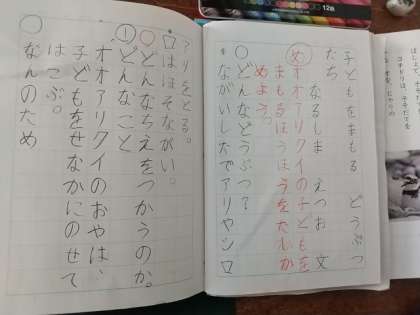 子どもをまもる どうぶつ
たち なるしま えつお 文
め オオアリクイの子どもを
まもるほうほうをたしか
めよう。
○どんなどうぶつ?
ながいしたでアリヤシロ
アリをとる。
口はほそながい。
○どんなちえをつかうのか。
①どんなこと
オオアリクイのおやは、
子どもをせなかにのせて
はこぶ。
○なんのため